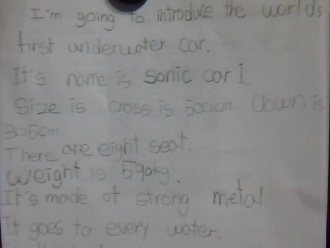 I'm going to introduce the worlds
first underwater car.
It's name is sonic car 1
Size is cross is 500cm. Down is
305cm.
There are eight seat.
weight is 590kg.
It's made of strong metal
It goes to every water.